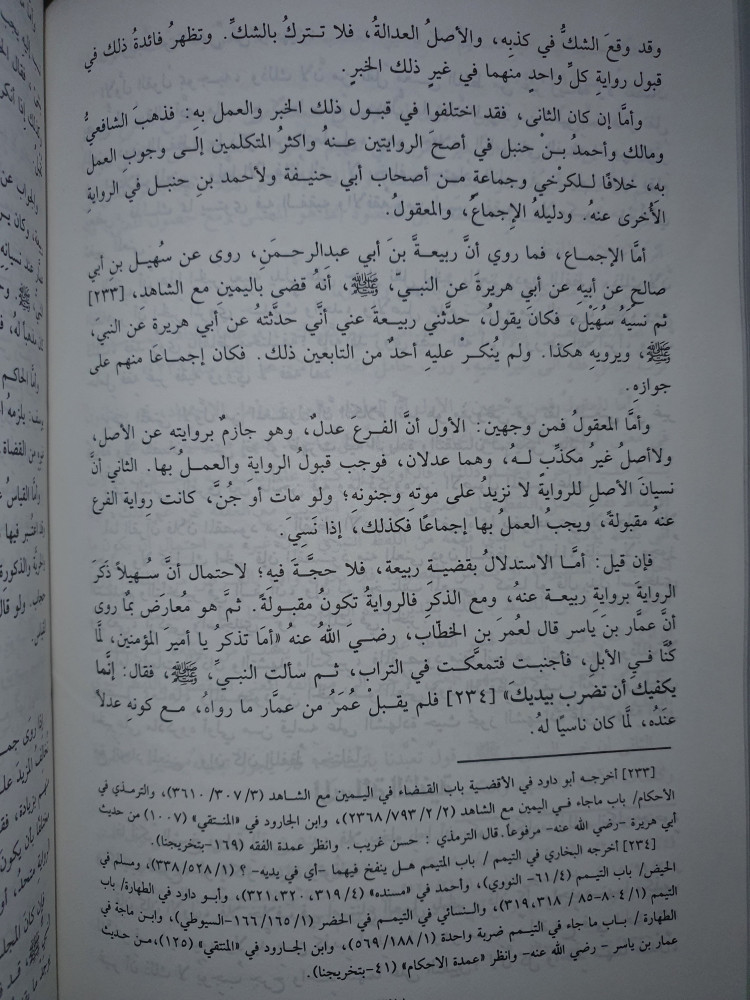 وقد وقعَ الشكُّ في كذبِه، والأصلُ العدالةُ، فلا تـتركُ بالشكِّ. وتظهرُ فائدةُ ذلك في
قبول روايةِ كلِّ واحدٍ منهما في غيرِ ذلك الخبرِ.
وأمَّا إن كان الثانى، فقد اختلفوا في قبـول ذلك الخبر والعمل بهِ: فذهبَ الشافعيُّ
ومالك وأحمدُ بـنْ حنبل في أصحَ الروايتين عـنهُ واكثرُ المتكلمين إلـى وجوبِ العمل
به، خلافًا للكرْخي وجماعةٍ مـن أصحاب أبي حنيـفة ولأحمد بنِ حنبـل في الروايةِ
الأُخرى عنهُ. ودليلهُ الإجماعُ، والمعقولُ.
أمَّا الإجمـاع، فما روي أنَّ ربيعـةَّ بنَ أبي عبدالرحـمَنِ، روى عن سُهيـل بن أبي
صالحٍ عن أبيهِ عن أبي هريرةَ عن النبـيّ، ﷺ، أنهُ قضى باليمين مع الشاهدِ، [٢٣٣]
ثم نسيَهُ سُهَيْل، فكانَ يقولُ، حدَّثني ربيـعةَ عني أنَّي حدَّثتهُ عن أبي هريرة عن النبيَ،
ﷺ، ويرويهِ هكذا. ولم يُنكـرْ عليهِ أحدٌ من التابعين ذلك. فكان إجمـاعًا منهم على
جوازهِ.
وأمَّا المعقولُ فمن وجهين: الأول أنَّ الفـرع عدلٌ، وهو جازمٌ بروايتهِ عن الأصل،
ولاأصلُ غيرُ مكذِّبٍ لـهُ، وهما عدلان، فوجب قبولُ الروايةِ والعمـلُ بها. الثاني أنَّ
نسيانَ الأصلِ للروايةَ لا نزيدُ على موتهِ وجنونهِ؛ ولو مات أو جُنَّ، كانت رواية الفرع
عنهُ مقبولةً، ويجبُ العملُ بها إجماعًا فكذلك، إذا نَسِيَ.
فإن قيل: أمَّـا الاستدلالُ بقضيـةِ ربيعة، فلا حجَّـةَ فيه؛ لاحتمال أنَّ سُـهيلاً ذَكَرَ
الروايةَ بروايةِ ربيعة عنهُ، ومع الذكرِ فالروايةُ تكونُ مقبولَةً. ثمَّ هو مُعارَض بمُا روى
أنَّ عمَّار بن ياسر قال لعُمرَ بنِ الخطَّاب، رضـيَ اللهُ عنهُ «أمَا تذكرُ يا أميرَ المؤمنين، لَّا
كُنَّا فـي الأبلِ، فأجنبـت فتمعَّكـت في التراب، ثـم سألت النبـيَّ، ﷺ، فقال: إنَّما
يكفيكَ أن تضرب بيديكَ» [٢٣٤] فلم يقبـلْ عُمَرُ من عمَّار ما رواهُ، مـع كونهِ عدلاً
عنَدُه، لَّا كان ناسيًا لهُ.
[٢٣٣] أخرجـه أبو داود في الأقضيـة باب القضـاء في اليمـين مع الشاهـد (٣/ ٣٠٧/ ٣٦١٠)، والترمذي في
الأحكام/ باب ماجاء فـي اليمين مع الشاهد (٢/ ٢/ ٧٩٣/ ٢٣٦٨)، وابن الجارود في «المنتقي» (١٠٠٧) من حديث
أبي هريرة –رضي الله عنه– مرفوعاً. قال الترمذي : حسن غريب. وانظر عمدة الفقه (١٦٩–بتخريجنا).
[٢٣٤] أخرجه البخاري في التيمم / باب المتيمم هل ينفخ فيهما –أي في يديه– ؟ (١/ ٥٢٨/ ٣٣٨)، ومسلم في
الحيض/ باب التيمـم (٤/ ٦١– النووي)، وأحمد في «مـسنده» (٤/ ٣١٩، ٣٢٠، ٣٢١)، وأبـو داود في الطهارة/ باب
التيمم (١/ ٨٠٤–٨٥ / ٣١٨، ٣١٩)، والنـسائي في التيمـم في الحضر (١/ ١٦٥/ ١٦٦–السيوطي)، وابـن ماجة في
الطهارة / بـاب ما جاء في التيمم ضربة واحدة (١/ ١٨٨/ ٥٦٩)، وابن الجـارود في «المنتقي» (١٢٥)،مـن حديث
عمار بن ياسر – رضي الله عنه– وانظر «عمدة الاحكام» (٤١–بتخريجنا).